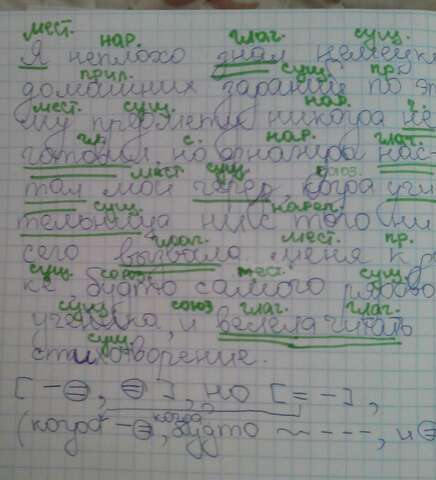 мест. нар. глаг. сущ.
Я неплохо знал немецк
прил. сущ. пр.
домашних заданий по эт
мест. сущ. нар. ч.
му предмету никогда не
гл. с. нар. глаг.
готовил, но однажды нас-
мест сущ. союз.
тал мой черед, когда учи
сущ. нареч.
тельница ни с того ни
глаг. мест. пр.
сего вызвала меня к
сущ. союз. мест. сущ.
ке будто самого рядово
сущ. союз глаг. глаг.
ученика, и велела читать
сущ.
стихотворение.
[ -⊜, ⊜ ], но [= -],
когда
(когда -⊜, будто ~ ---, и ⊜